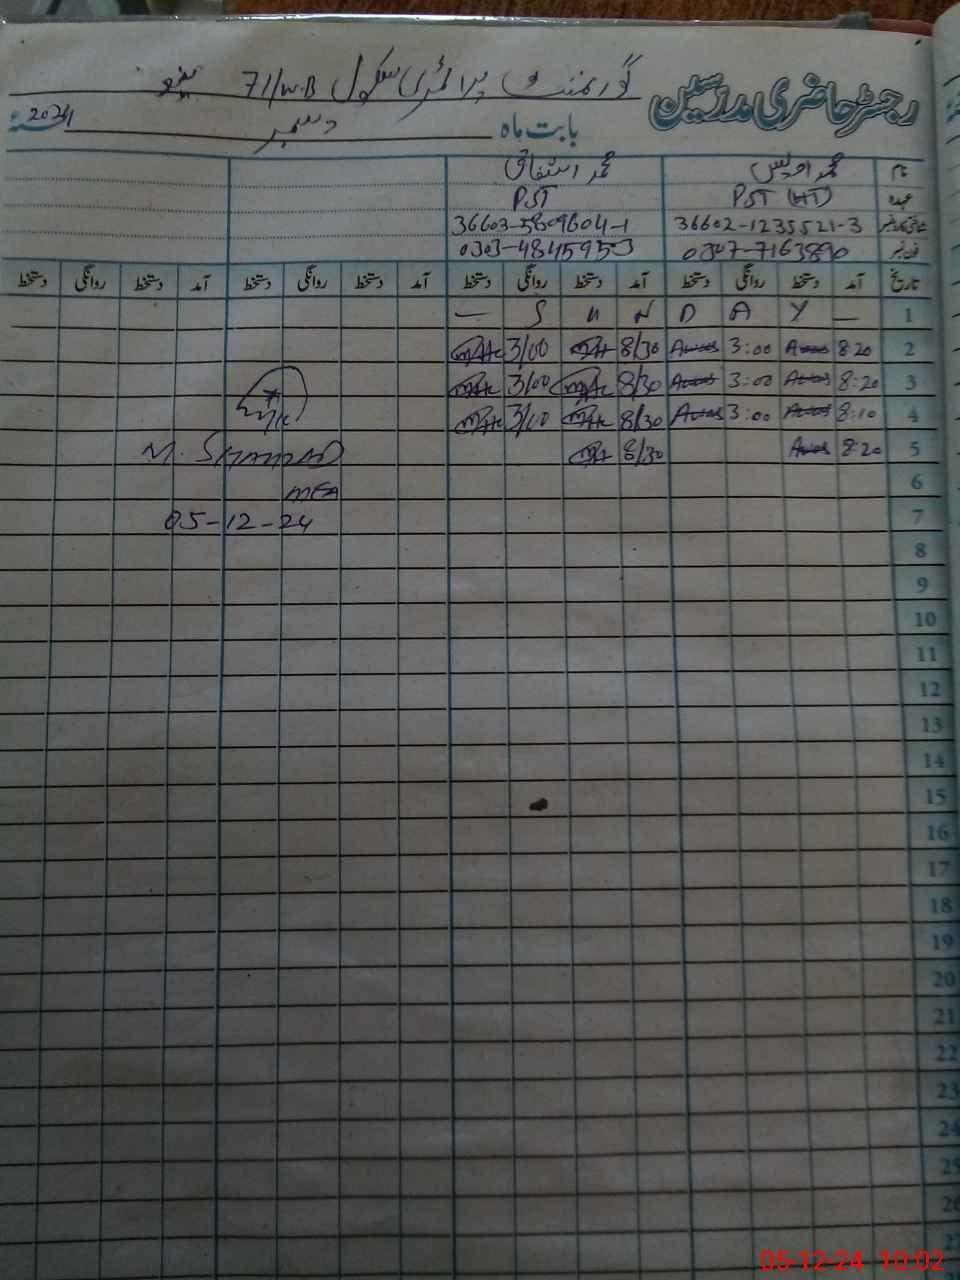 گورنمنٹ پرائمری سکول 71/W.B
رجسٹر حاضری مدرسین
بابت ماہ دسمبر 2024
نام محمد اویس محمد اشفاق
عہدہ PST (HT) PST
36602-1235521-3 36603-5809604-1
فون نمبر 0307-7163890 0303-4845953
تاریخ آمد دستخط روانگی دستخط آمد دستخط روانگی دستخط آمد دستخط روانگی دستخط آمد دستخط روانگی دستخط
1 — S U N D A Y —
2 8:20 Awais 3:00 Awais 8/30 3/00
3 8:20 Awais 3:00 Awais 8/30 3/00
4 8:10 Awais 3:00 Awais 8/30 3/00
5 8:20 Awais 8/30
M. SHAHZAD
6
MEA
7
05-12-24
8
9
10
11
12
13
14
15
16
17
18
19
20
21
22
23
24
25
26
05-12-24 10:02